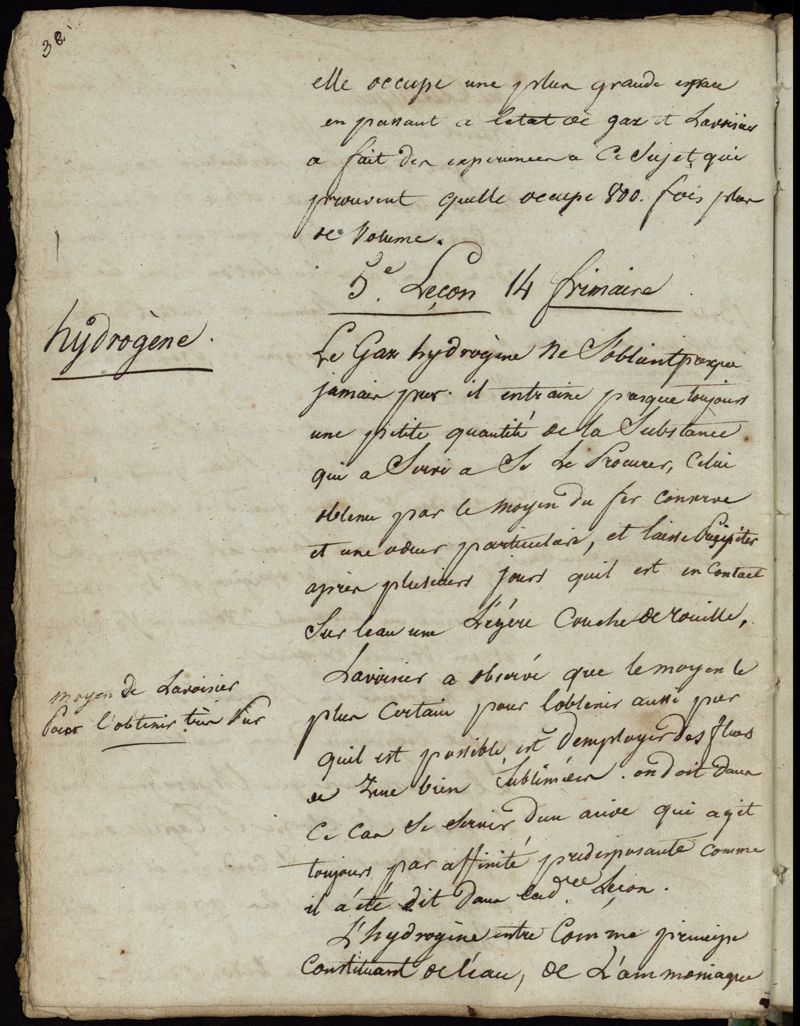 38
elle occupe une plus grande espace
en passant a letat de gaz et Lavoisier
a fait des experiences a ce Sujet, qui
prouvent quelle occupe 800. fois plus
de Volume.
5e. Leçon 14 frimaire
hydrogène.
Le Gaz hydrogène ne S'obtient presque
jamais pur. il entraine presque toujours
une petite quantité de la Substance
qui a Servi a Se Le Procurer, Celui
obtenu par le moyen du fer conserve
et une odeur particuliere, et laisse
apres plusieurs jours quil est en Contact
Sur leau une Légére Couche de rouille,
moyen de Lavoisier
Pour l'obtenir très Pur
Lavoisier a observé que le moyen le
plus Certain pour l'obtenir aussi pur
quil est possible est d'employer des fleurs
de Zinc bien Sublimées. on doit dans
Ce Cas Se Servir d'un acide qui agit
toujours par affinité prédisposante comme
il a été dit dans la Leçon.
L'hydrogène entre Comme principe
Constituant de l'eau, de L'ammoniaque